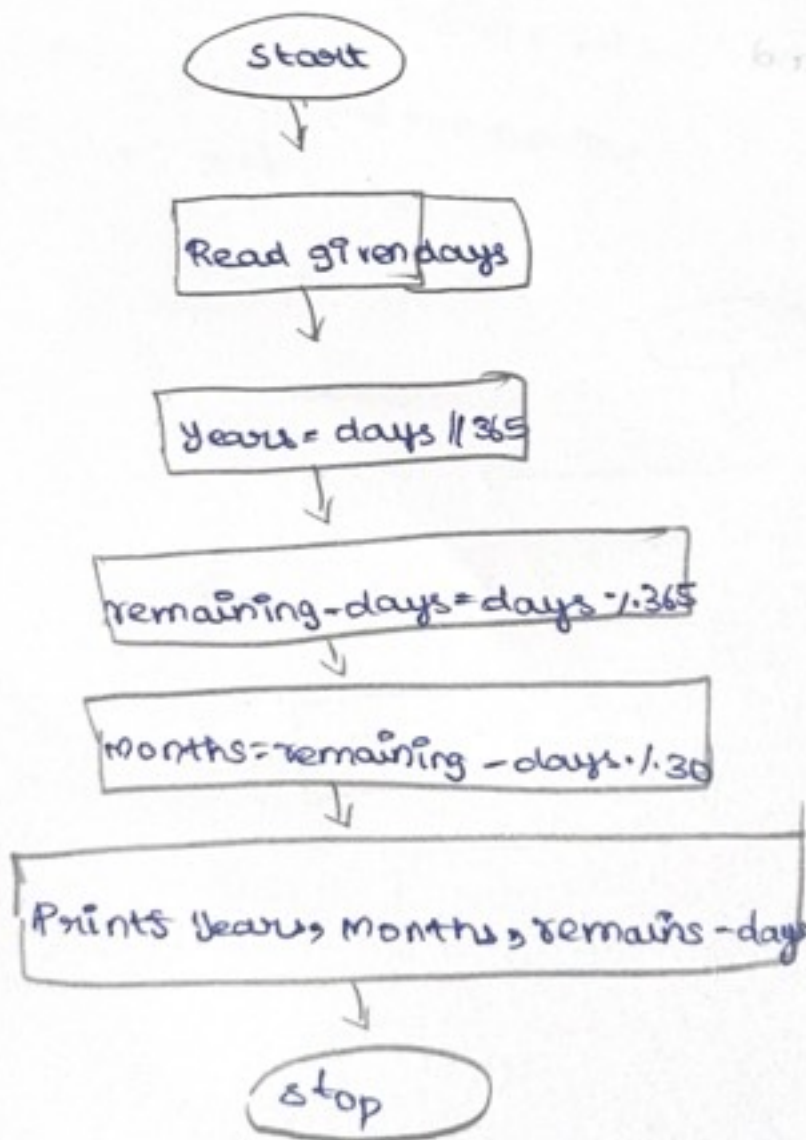 Start
Read given days
Years = days // 365
remaining-days = days % 365
Months = remaining - days % 30
Prints Years, Months, remains - days
stop